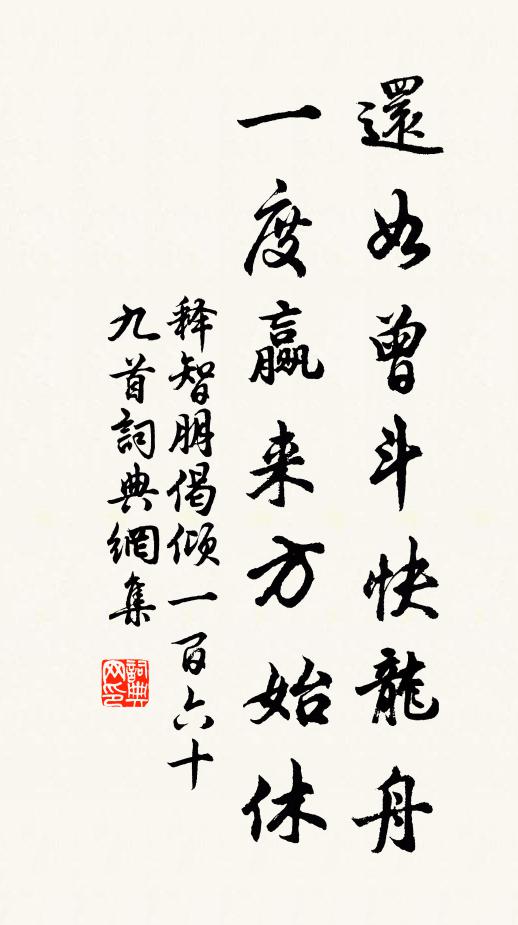 還如曾斗快龍舟
一度贏来方始休
释智朋偈傾一百六十
九首詞典網集
詞典网印